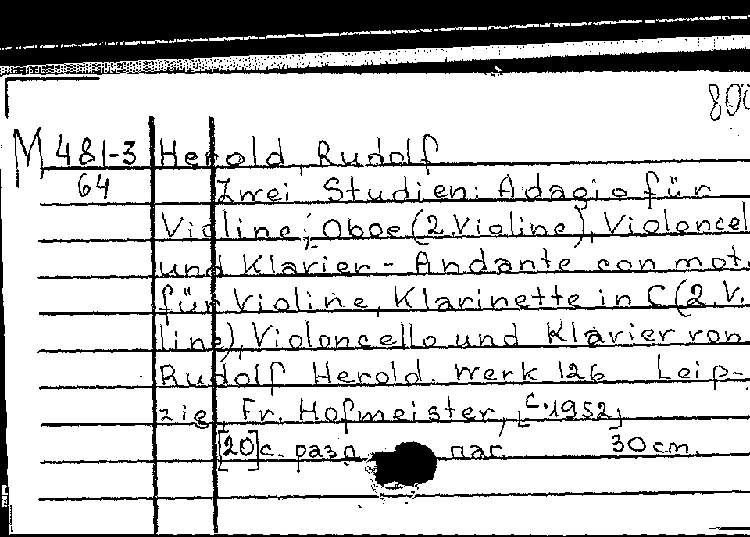 800
M 481-3 Herold, Rudolf
64 Zwei Studien: Adagio für
Violine, Oboe (2.Violine), Violoncel
und Klavier - Andante con mot.
für Violine, Klarinette in C (2.V.
line), Violoncello und Klavier von
Rudolf Herold. Werk 126 Leip-
zig Fr. Hofmeister, [c.1952]
[20]c. разд паг 30 cm.